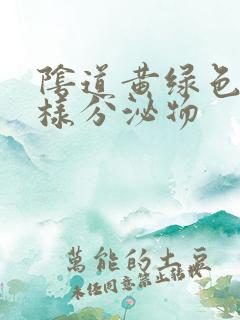 陰道黄绿色
樣分泌物
萬能的土豆
未任同意禁止转载